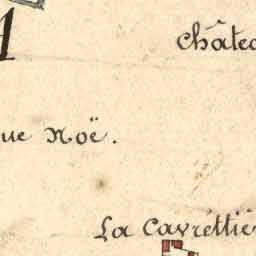 A
Châte
ue Noë.
La Cavrettiè